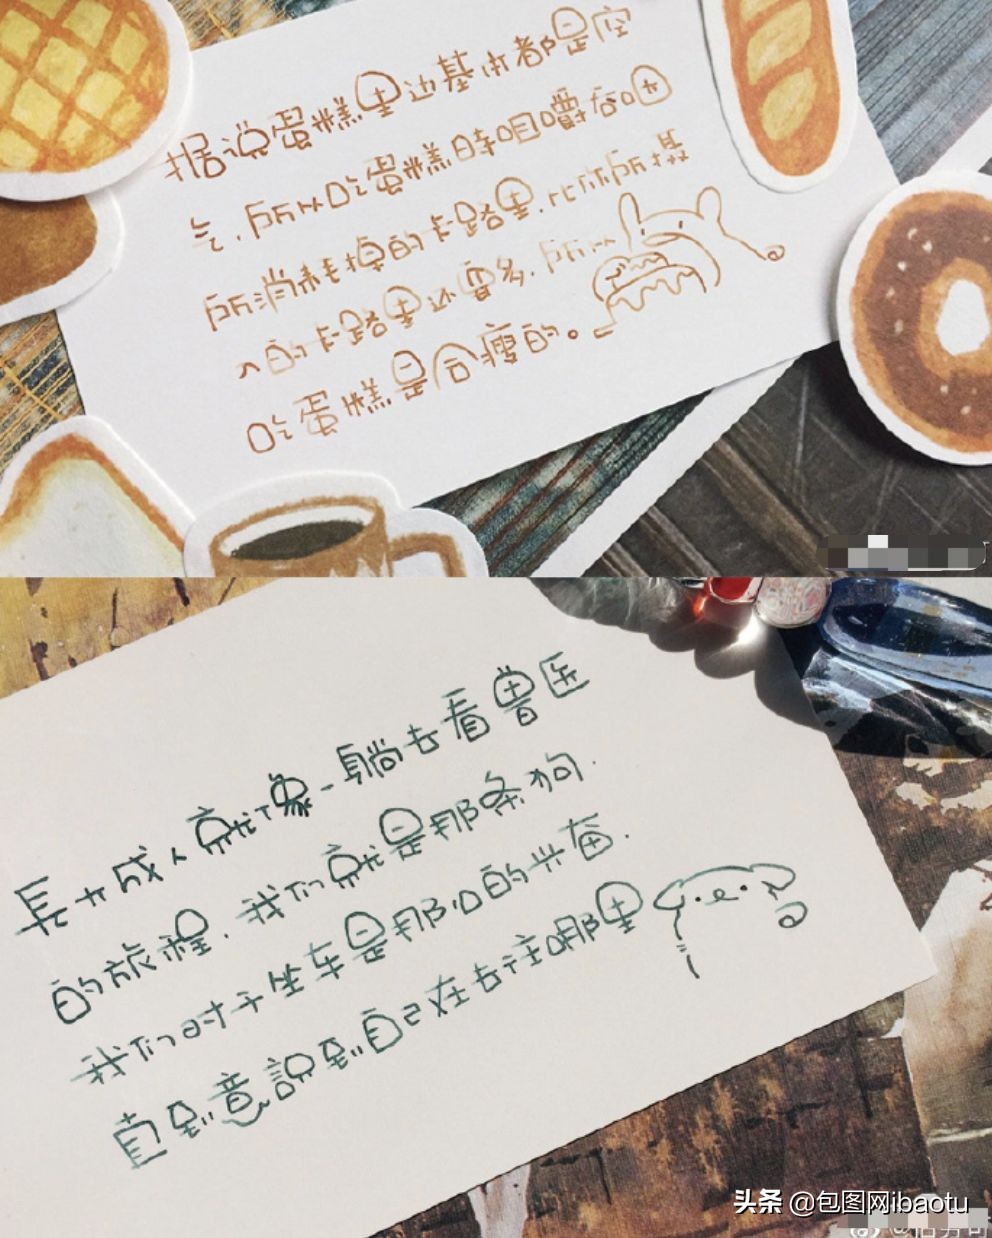 据说蛋糕里边基本都是空
气，所以吃蛋糕时咀嚼吞咽
所消耗掉的卡路里，比你所摄
入的卡路里还要多，所以
吃蛋糕是会瘦的。
長大成人就像一躺去看兽医
的旅程，我们就是那条狗，
我们对于坐车是那么的兴奋，
直到意識到自己在去往哪里
头条 @包图网ibaotu